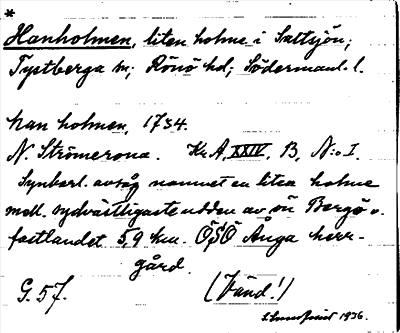 *
Hanholmen, liten holme i Saltsjön;
Tystberga sn; Rönö hd; Södermanl. l.
han holmen, 1734.
N. Strömcrona. Kr. A, XXIV, B, N:o I.
Synbarl. avsåg namnet en liten holme
mell. sydvästligaste udden av ön Bergö o.
fastlandet 5,9 km. ÖSÖ Ånga herr-
gård.
G. 57. (Vänd!)
1936.